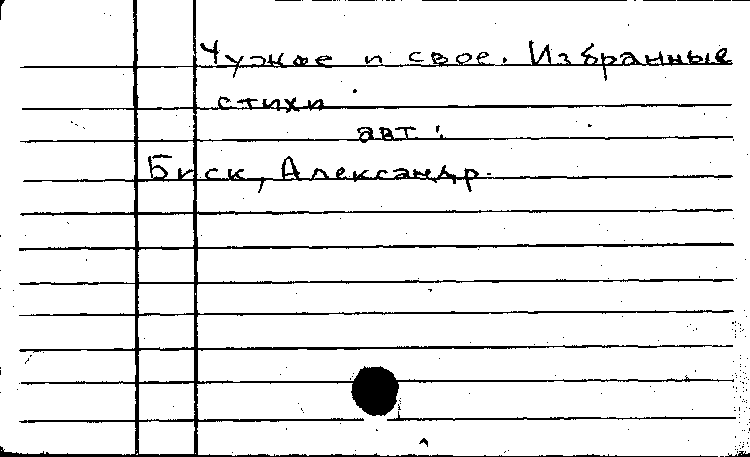 Чужое и свое. Избранные
стихи
авт:
Биск, Александр.